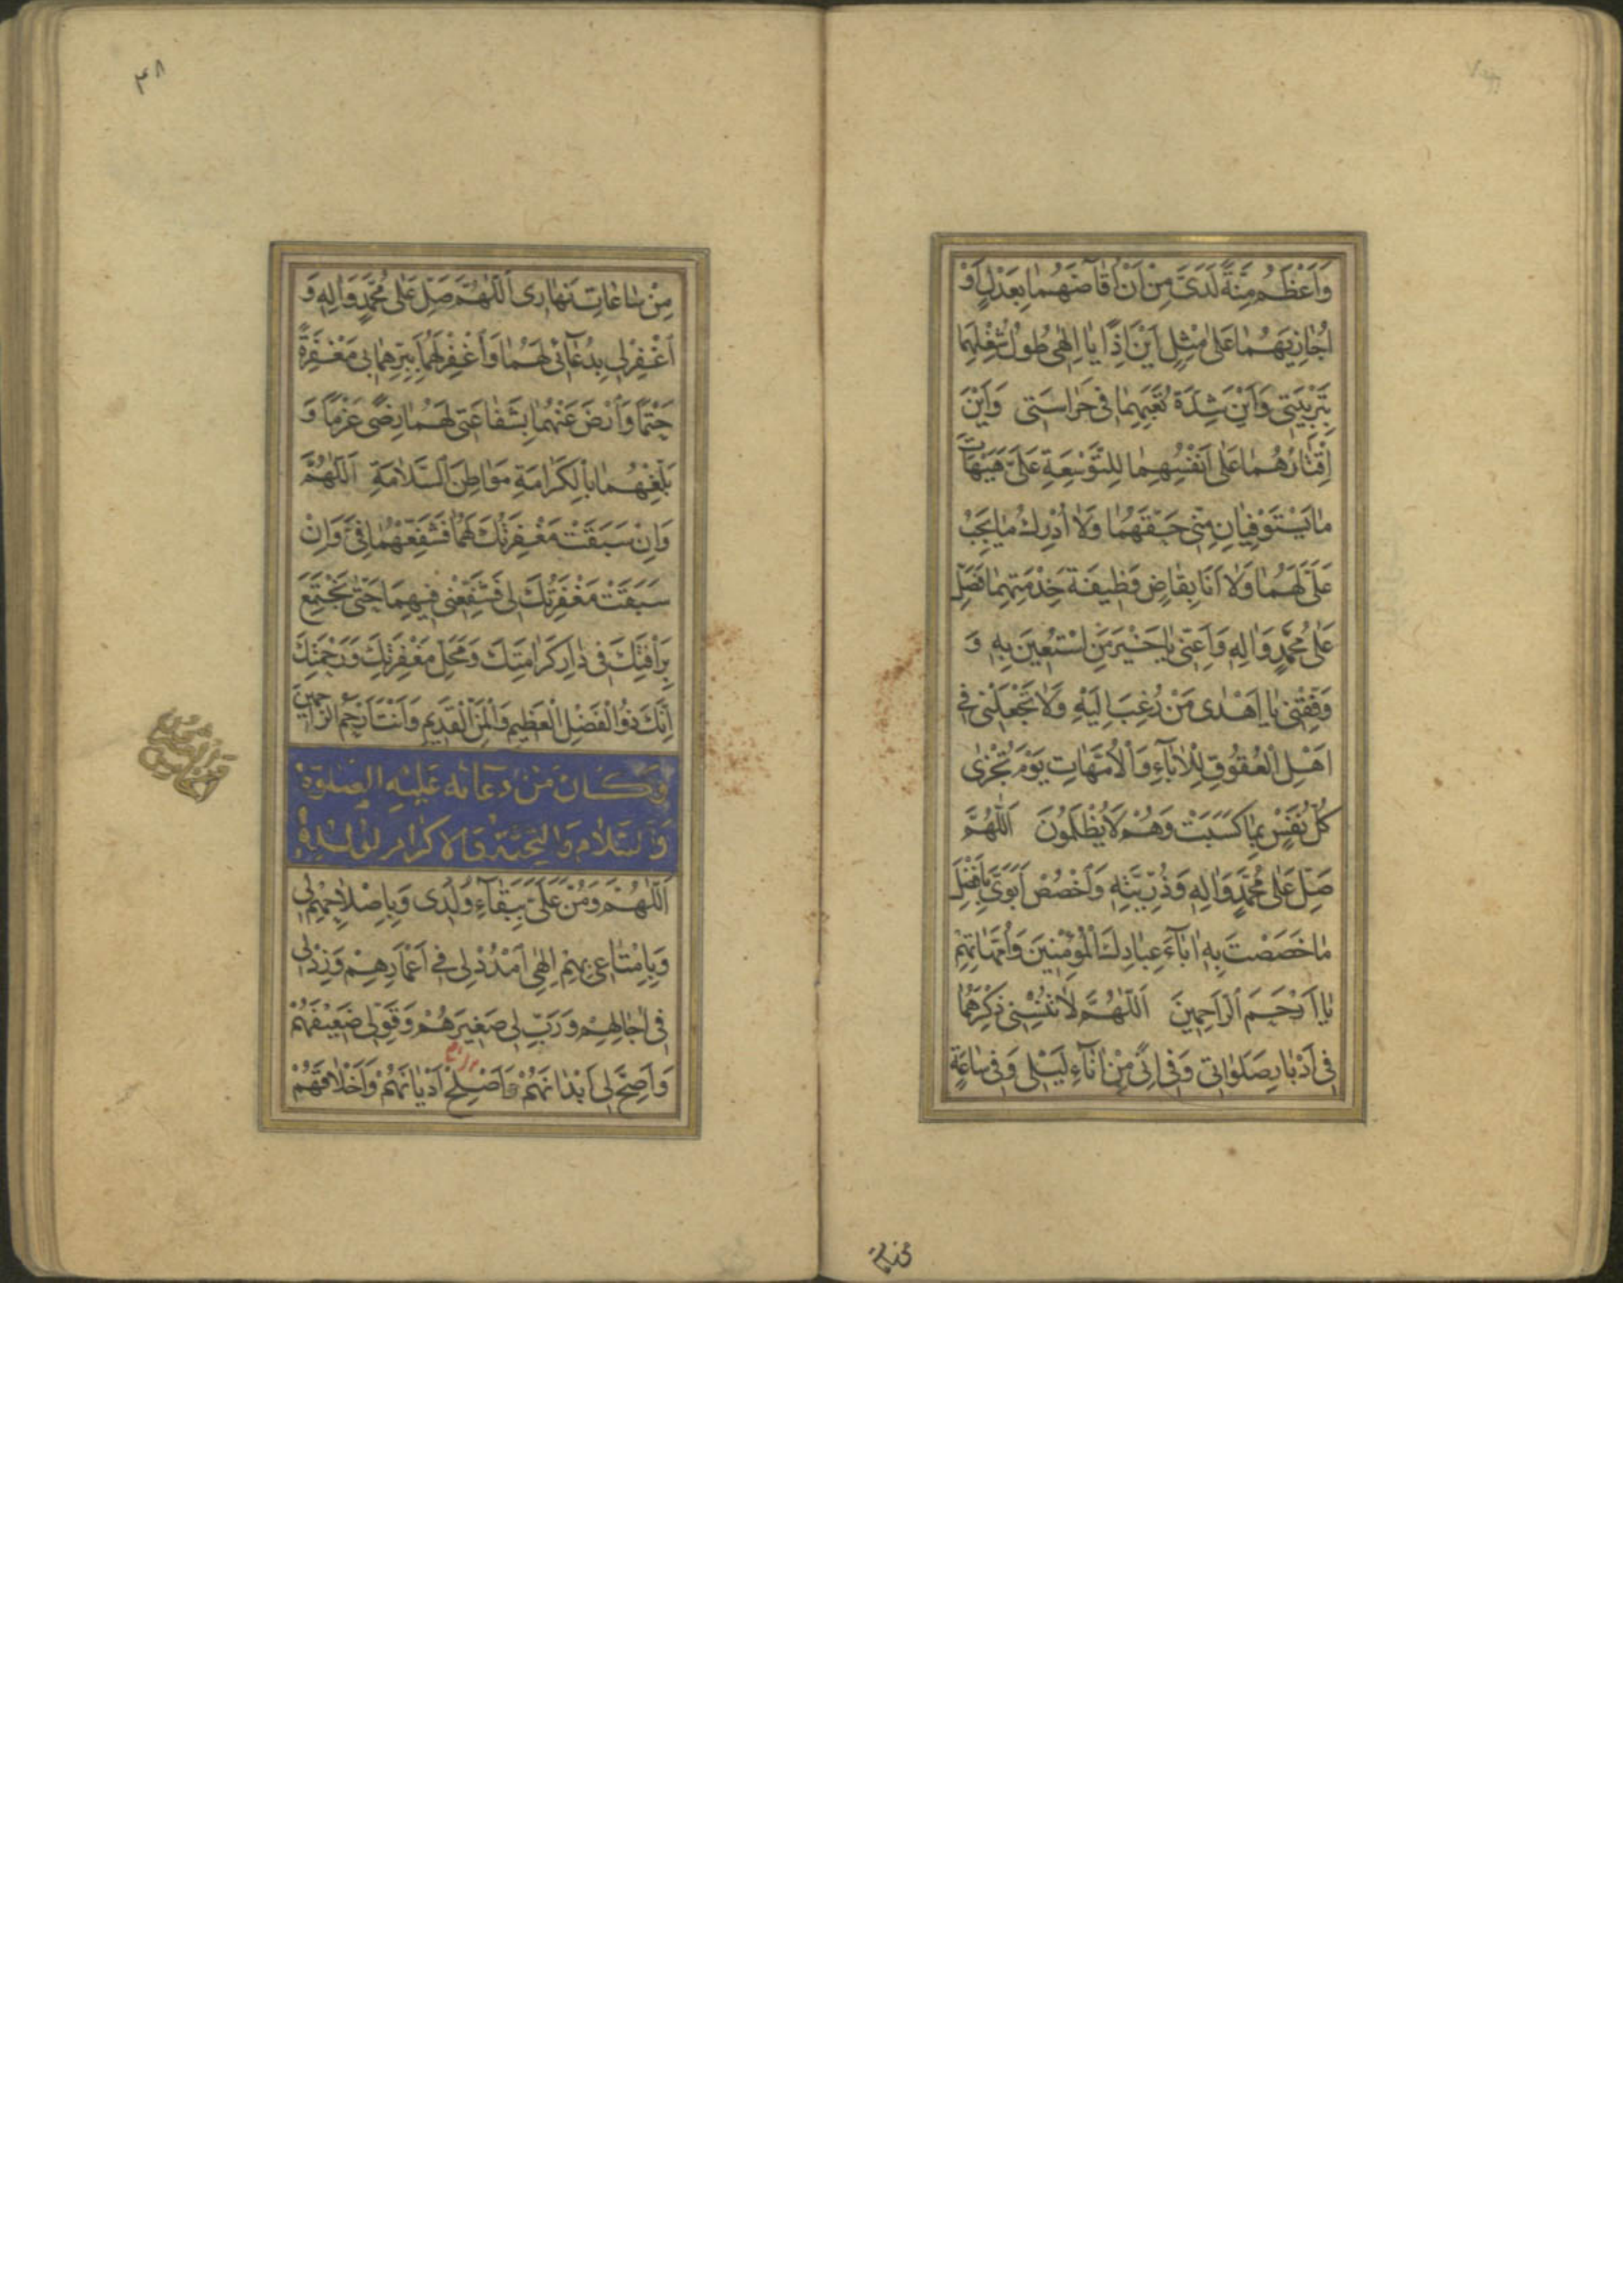 وَاَعْظَمُ مِنَّةً لَدَىَّ مِنْ اَنْ اُقٰاصَّهُمٰا بِعَدْلٍ اَوْ
اُجٰازِيَهُمٰا عَلىٰ مِثْلٍ اَيْنَ اِذًا يٰا اِلٰهى طُولُ شُغْلِهِمٰا
بِتَرْبِيَتى وَاَيْنَ شِدَّةُ تَعَبِهِمٰا فى حَرٰاسَتى وَاَيْنَ
اِقْتٰارُهُمٰا عَلىٰ اَنْفُسِهِمٰا لِلتَّوْسِعَةِ عَلَىَّ هَيْهٰاتَ
مٰا يَسْتَوْفِيٰانِ مِنّى حَقَّهُمٰا وَلٰا اُدْرِكُ مٰا يَجِبُ
عَلَىَّ لَهُمٰا وَلٰا اَنَا بِقٰاضٍ وَظيفَةَ خِدْمَتِهِمٰا فَصَلِّ
عَلىٰ مُحَمَّدٍ وَاٰلِهِ وَاَعِنّى يٰا خَيْرَ مَنِ اسْتُعينَ بِهِ وَ
وَفِّقْنى يٰا اَهْدىٰ مَنْ رُغِبَ اِلَيْهِ وَلٰا تَجْعَلْنى فى
اَهْلِ الْعُقُوقِ لِلْاٰبٰآءِ وَالْاُمَّهٰاتِ يَوْمَ تُجْزىٰ
كُلُّ نَفْسٍ بِمٰا كَسَبَتْ وَهُمْ لٰا يُظْلَمُونَ اَللّٰهُمَّ
صَلِّ عَلىٰ مُحَمَّدٍ وَاٰلِهِ وَذُرِّيَّتِهِ وَاخْصُصْ اَبَوَىَّ بِاَفْضَلِ
مٰا خَصَصْتَ بِهِ اٰبٰآءَ عِبٰادِكَ الْمُؤْمِنينَ وَاُمَّهٰاتِهِمْ
يٰا اَرْحَمَ الرّٰاحِمينَ اَللّٰهُمَّ لٰا تُنْسِنى ذِكْرَهُمٰا
فى اَدْبٰارِ صَلَوٰاتى وَفى اِنًى مِنْ اٰنٰآءِ لَيْلى وَفى سٰاعَةٍ
٣٨
مِنْ سٰاعٰاتِ نَهٰارى اَللّٰهُمَّ صَلِّ عَلىٰ مُحَمَّدٍ وَاٰلِهِ وَ
اغْفِرْ لى بِدُعٰآئى لَهُمٰا وَاغْفِرْ لَهُمٰا بِبِرِّهِمٰا بى مَغْفِرَةً
حَتْمًا وَارْضَ عَنْهُمٰا بِشَفٰاعَتى لَهُمٰا رِضًى عَزْمًا وَ
بَلِّغْهُمٰا بِالْكَرٰامَةِ مَوٰاطِنَ السَّلٰامَةِ اَللّٰهُمَّ
وَاِنْ سَبَقَتْ مَغْفِرَتُكَ لَهُمٰا فَشَفِّعْهُمٰا فِىَّ وَاِنْ
سَبَقَتْ مَغْفِرَتُكَ لى فَشَفِّعْنى فيهِمٰا حَتّٰى نَجْتَمِعَ
بِرَاْفَتِكَ فى دٰارِ كَرٰامَتِكَ وَمَحَلِّ مَغْفِرَتِكَ وَرَحْمَتِكَ
اِنَّكَ ذُو الْفَضْلِ الْعَظيمِ وَالْمَنِّ الْقَديمِ وَاَنْتَ اَرْحَمُ الرّٰاحِمينَ
وَكَانَ مِنْ دُعَآئِهِ عَلَيْهِ الصَّلٰوةُ
وَالسَّلٰامُ وَالتَّحِيَّةُ وَالاكرٰام لِوُلْدِهِ
اَللّٰهُمَّ وَمُنَّ عَلَىَّ بِبَقٰآءِ وُلْدى وَبِاِصْلٰاحِهِمْ لى
وَبِاِمْتٰاعى بِهِمْ اِلٰهى اُمْدُدْ لى فى اَعْمٰارِهِمْ وَزِدْ لى
فى اٰجٰالِهِمْ وَرَبِّ لى صَغيرَهُمْ وَقَوِّ لى ضَعيفَهُمْ
وَاَصِحَّ لى اَبْدٰانَهُمْ وَاَصْلِحْ اَدْيٰانَهُمْ وَاَخْلٰاقَهُمْ